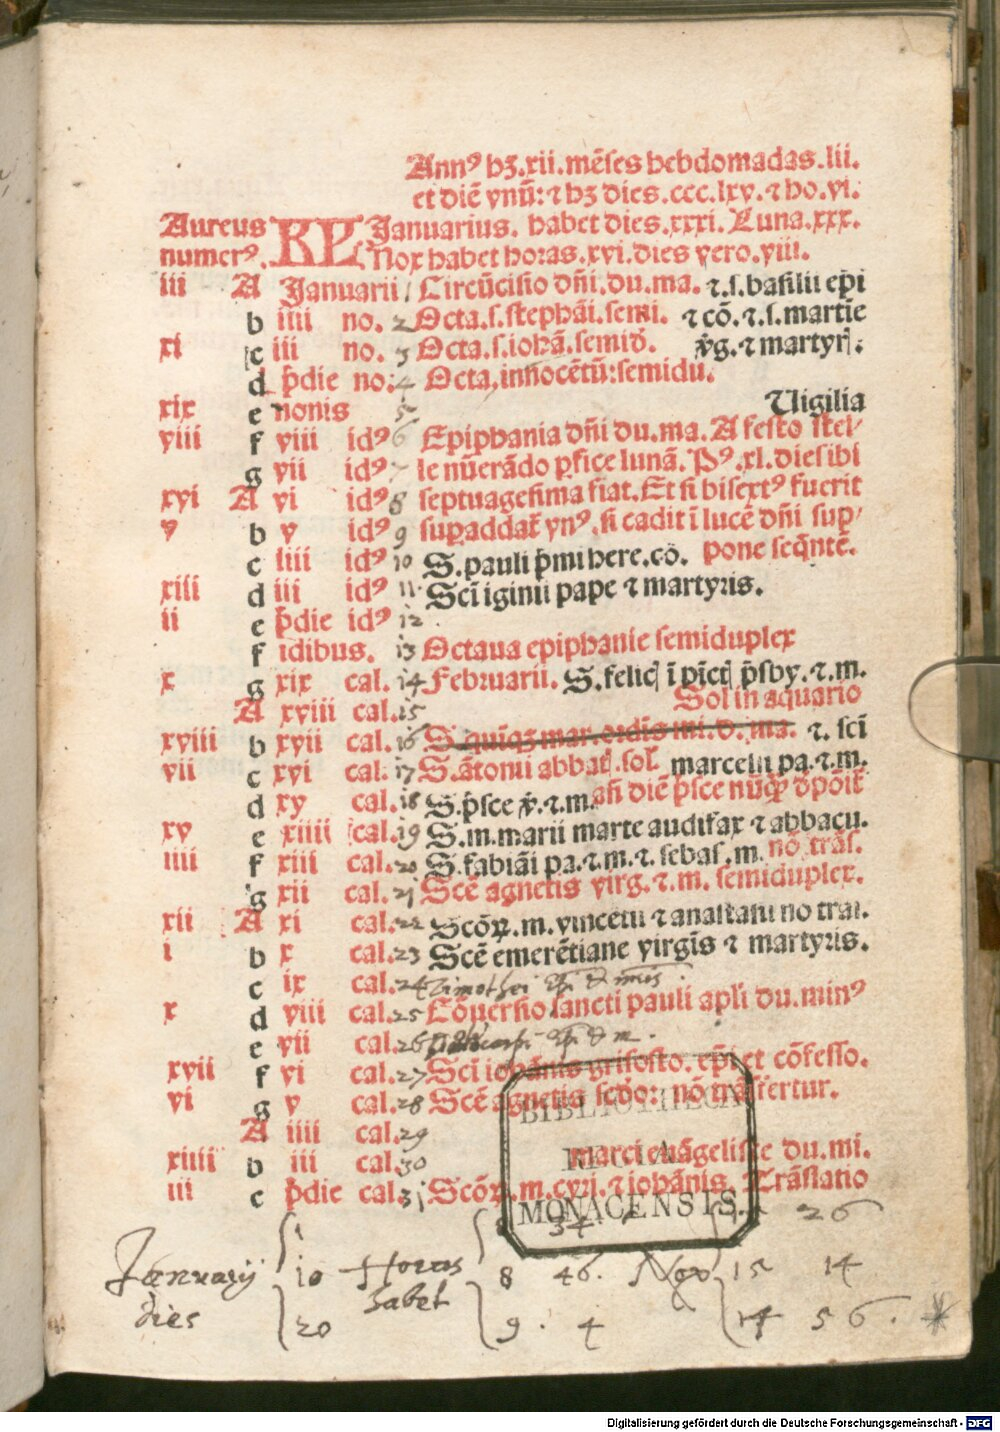 Annꝰ hꝫ.xii.mēses hebdomadas.lii.
et diē vnū: ⁊ hꝫ dies.ccc.lxv.⁊ ho.vi.
Aureus KL Januarius. habet dies.xxxi. Luna.xxx.
numerꝰ. Nox habet horas.xvi.dies vero.viii.
iii A Januarii 1 Circūcisio dñi.du.ma. ⁊.s.basilii epi
b iiii no. 2 Octa.s.stephāi.semi. ⁊ cō.⁊.s.martie
xi c iii no. 3 Octa.s.iohā.semid. v̄g.⁊ martyr.
d p̄die no: 4 Octa.innocētū:semidu.
xix e nonis 5 Vigilia
viii f viii idꝰ 6 Epiphania dñi du.ma. A festo stel-
g vii idꝰ 7 le nūerādo ꝑfice lunā. Pꝰ.xl.die sibi
xvi A vi idꝰ 8 septuagesima fiat. Et si bisextꝰ fuerit
v b v idꝰ 9 supaddat̄ vnꝰ. si cadit ī lucē dñi sup-
c iiii idꝰ 10 S.pauli p̄mi here.cō. pone seq̄ntē.
xiii d iii idꝰ 11 Sci iginii pape ⁊ martyris.
ii e p̄die idꝰ 12
f idibus. 13 Octaua epiphanie semiduplex
x g xix cal. 14 Februarii. S.felic ī pīct p̄sby.⁊.m.
A xviii cal. 15 Sol in aquario
xviii b xvii cal. 16 S.quīqꝫ mar.ordīs mi.d.ma. ⁊.sci
vii c xvi cal. 17 S.ātonii abbat.sol. marcelli pa.⁊.m.
d xv cal. 18 S.p̄sce v̄.⁊.m. añ diē p̄sce nūqꝫ dpōit̄
xv e xiiii cal. 19 S.m.marii marte audifax ⁊ abbacu.
iiii f xiii cal. 20 S.fabiāi pa.⁊.m.⁊.sebas.m. nō trās.
g xii cal. 21 Scē agnetis virg.⁊.m. semiduplex.
xii A xi cal. 22 Scōꝝ.m.vincetii ⁊ anastasii no tras.
i b x cal. 23 Scē emerētiane virgīs ⁊ martyris.
c ix cal. 24 Timothei Ep̄i & mris.
x d viii cal. 25 Cōuersio sancti pauli apli du.minꝰ
e vii cal. 26 Policarpi Ep̄i & m.
xvii f vi cal. 27 Sci iohānis grisosto. ep̄i et cōfesso.
vi g v cal. 28 Scē agnetis scdo: nō trāsfertur.
BIBLIOTHECA
A iiii cal. 29
xiiii b iii cal. 30 marci euāgeliste du.mi.
REGIA
iii c p̄die cal. 31 Scōꝝ.m.cyri.⁊ iohānis. Trāslatio
MONACENSIS.
1 34 26
Januarij 10 Horas 8 46. Nox 15 14
dies 20 habet 9. 4 14 56.
Digitalisierung gefördert durch die Deutsche Forschungsgemeinschaft - DFG